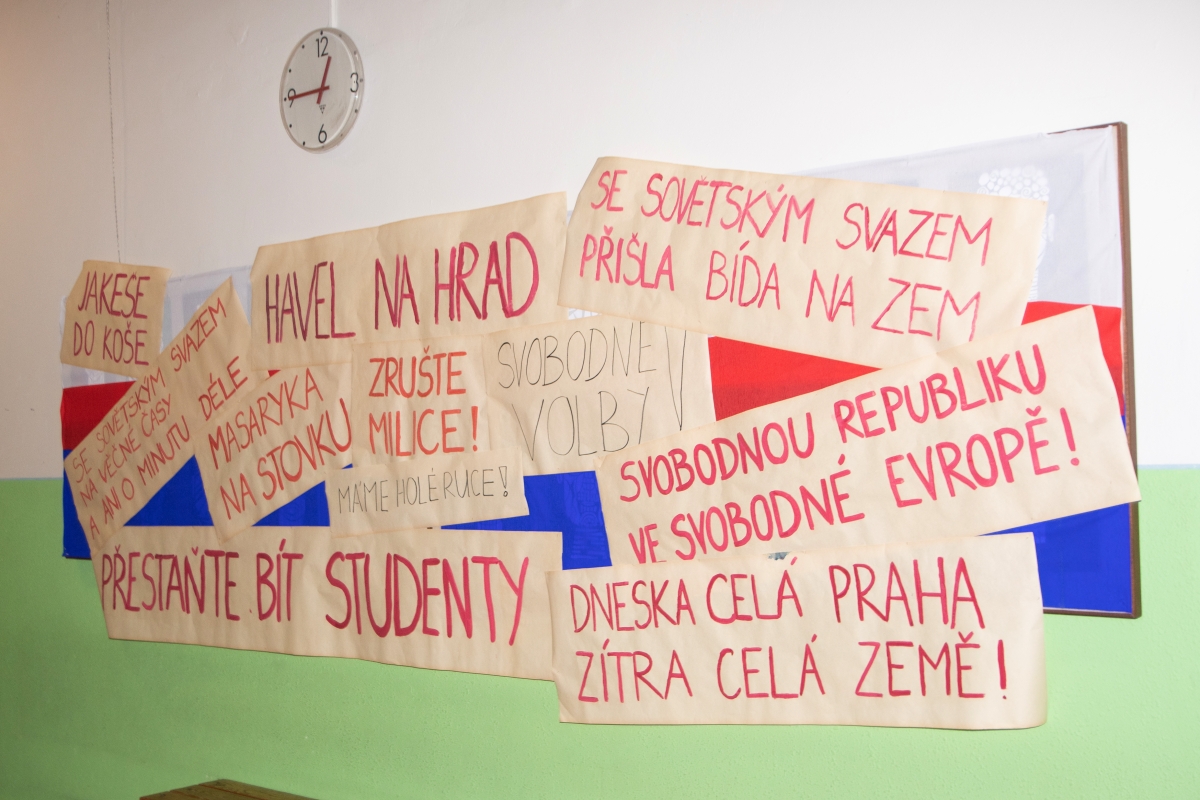 12
3
9
6
JAKEŠE
DO KOŠE
HAVEL NA HRAD
SE SOVĚTSKÝM SVAZEM
PŘIŠLA BÍDA NA ZEM
SE SOVĚTSKÝM SVAZEM
NA VĚČNÉ ČASY
A ANI O MINUTU DÉLE
MASARYKA
NA STOVKU
ZRUŠTE
MILICE!
SVOBODNÉ
VOLBY!
MÁME HOLÉ RUCE!
SVOBODNOU REPUBLIKU
VE SVOBODNÉ EVROPĚ!
PŘESTAŇTE BÍT STUDENTY
DNESKA CELÁ PRAHA
ZÍTRA CELÁ ZEMĚ!